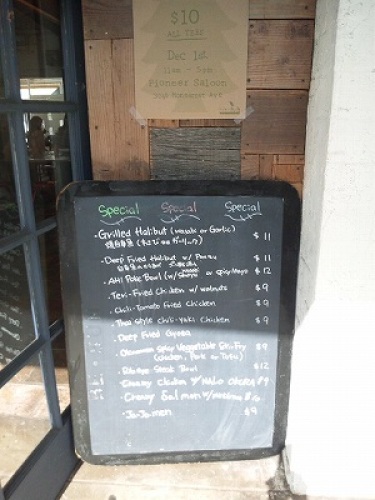 $10
ALL TEES
Dec 1st
11am - 5pm
Pioneer Saloon
3046 Monsarrat Ave
Special Special Special
·Grilled Halibut (Wasabi or Garlic) $11
·Deep Fried Halibut w/ Ponzu $11
·AHI Poke Bowl (w/ Shoyu or Spicy Mayo $12
·Teri-Fried Chicken w/ walnuts $9
·Chili-Tomato Fried Chicken $9
·Thai Style Chili-Yaki Chicken $9
·Deep Fried Gyoza
Spicy Vegetable Stir-Fry $9
(Chicken, Pork or Tofu)
·Ribeye Steak Bowl $12
·Creamy Chicken w/ $9
·Creamy Salmon w/
·Ja-Ja men $9